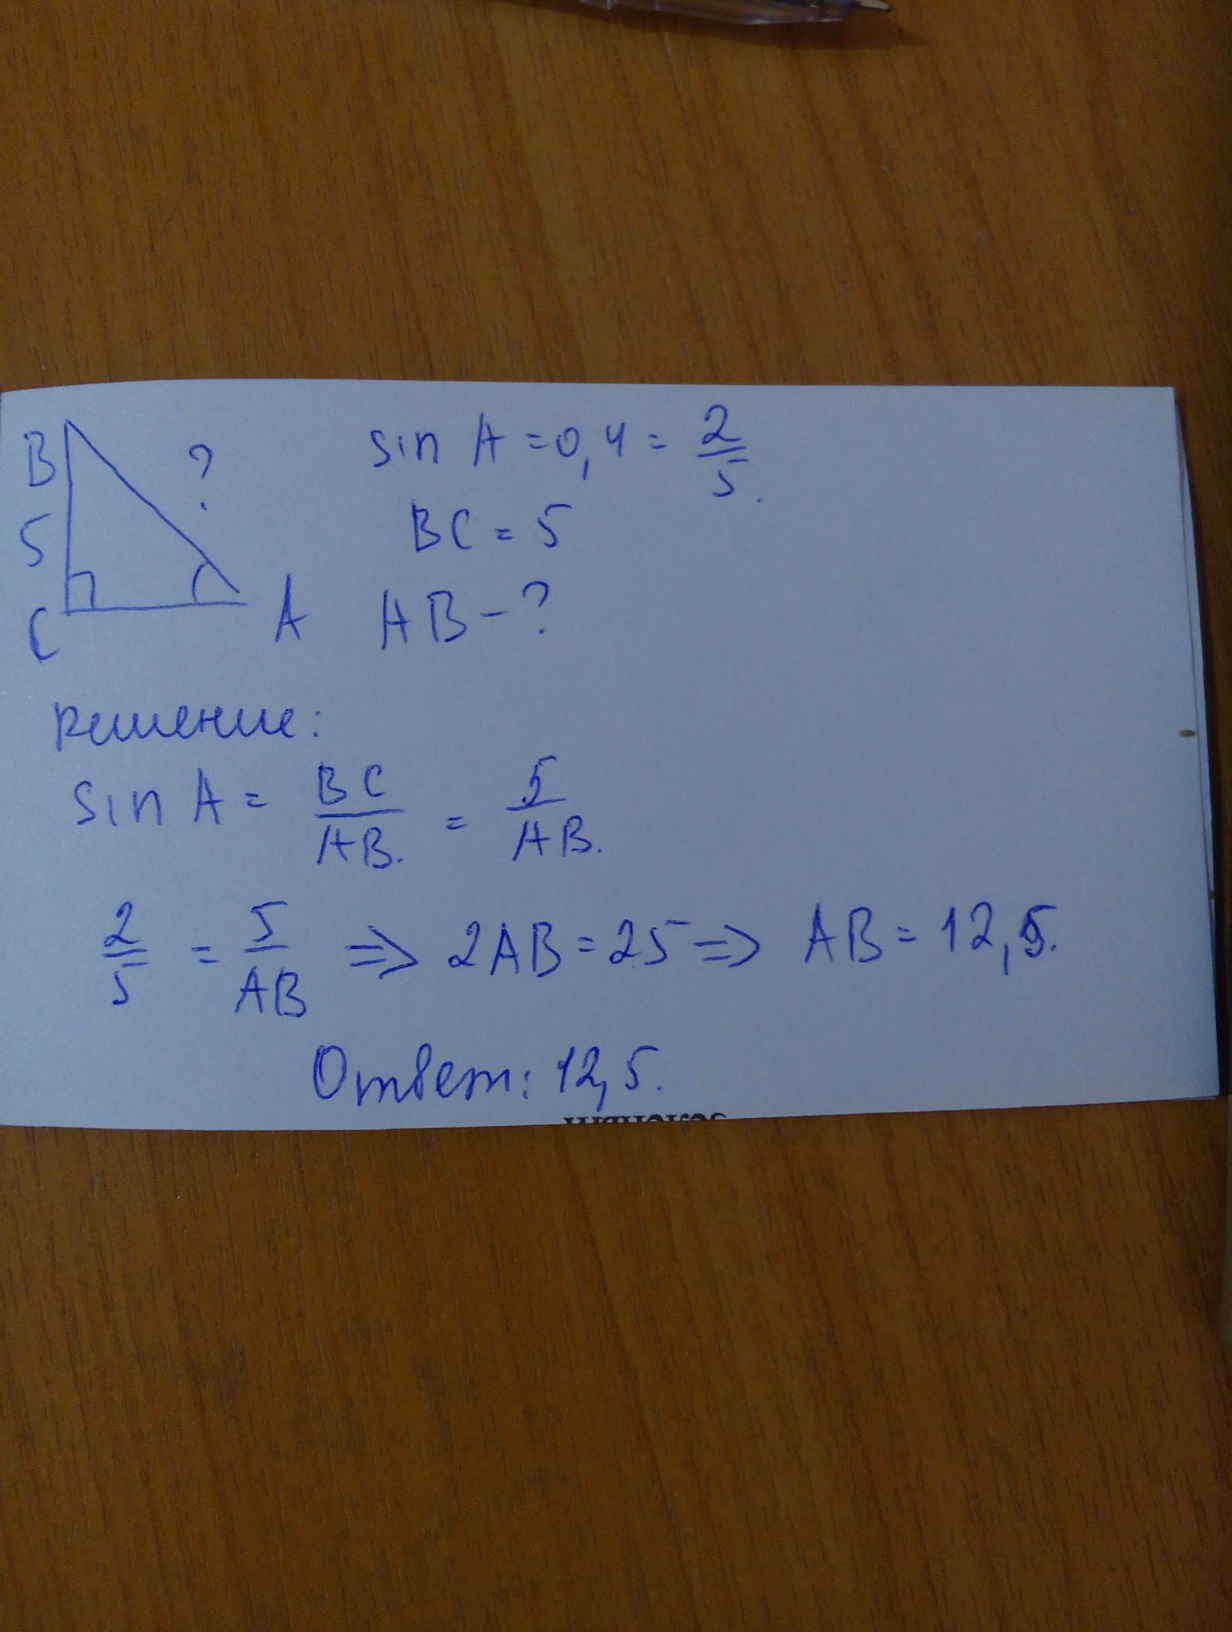 B ? sin A = 0,4 = 2/5.
5 BC = 5
C A AB - ?
решение:
sin A = BC/AB. = 5/AB.
2/5 = 5/AB ⇒ 2AB = 25 ⇒ AB = 12,5.
Ответ: 12,5.